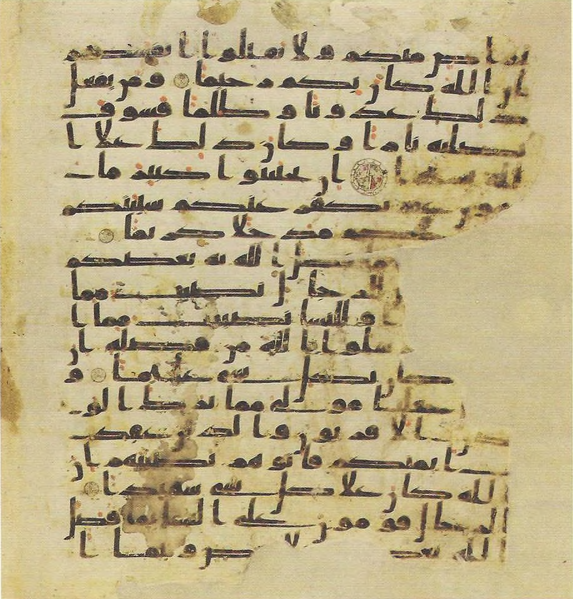 تراض منكم ولا تقتلوا انفسكم
ان الله كان بكم رحيما ومن يفعل
ذلك عدونا وظلما فسوف
نصليه نارا وكان ذلك على ا
لله يسيرا ان تجتنبوا كبير ما
تنهون عنه نكفر عنكم سيتكم
وندخلكم مدخلا كريما
فضل الله به بعضكم
للرجال نصيب مما
وللنسا نصيب مما ا
وسلوا الله من فضله ان
كان بكل شي عليما و
جعلنا مولي مما ترك الو
لدان والاقربون والذين عقد
ت ايمنكم فاتوهم نصيبهم ان
الله كان على كل شي شهيدا
الرجال قومون على النسا بما فضل
الله بعض وبما ا